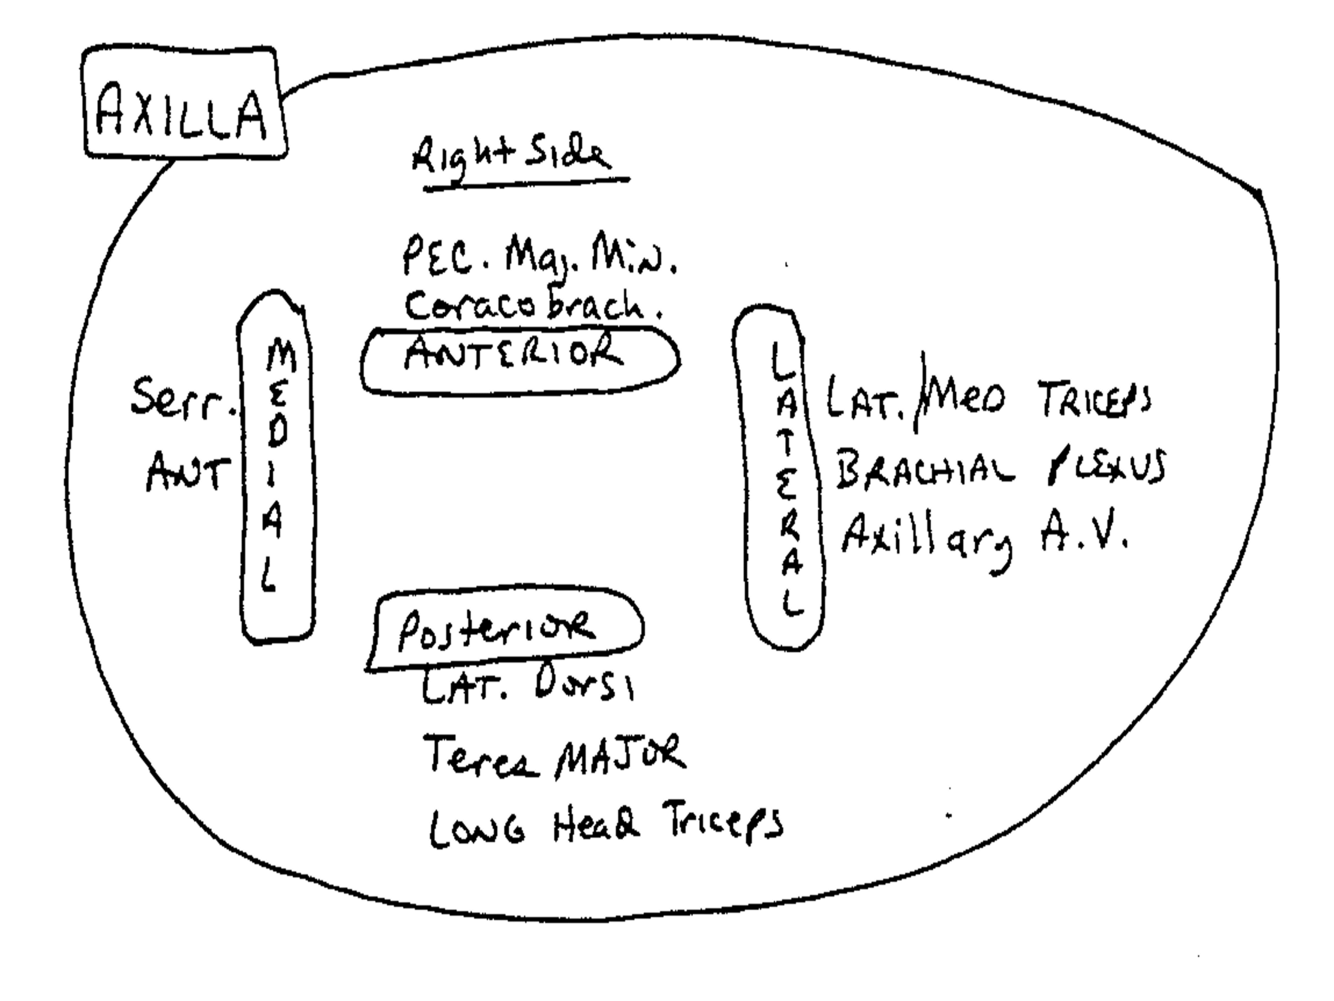 AXILLA
Right Side
PEC. Maj. Min.
Coracobrach.
ANTERIOR
MEDIAL
Serr.
ANT
LATERAL
LAT./MED TRICEPS
BRACHIAL PLEXUS
Axillary A.V.
Posterior
LAT. Dorsi
Teres MAJOR
LONG Head Triceps